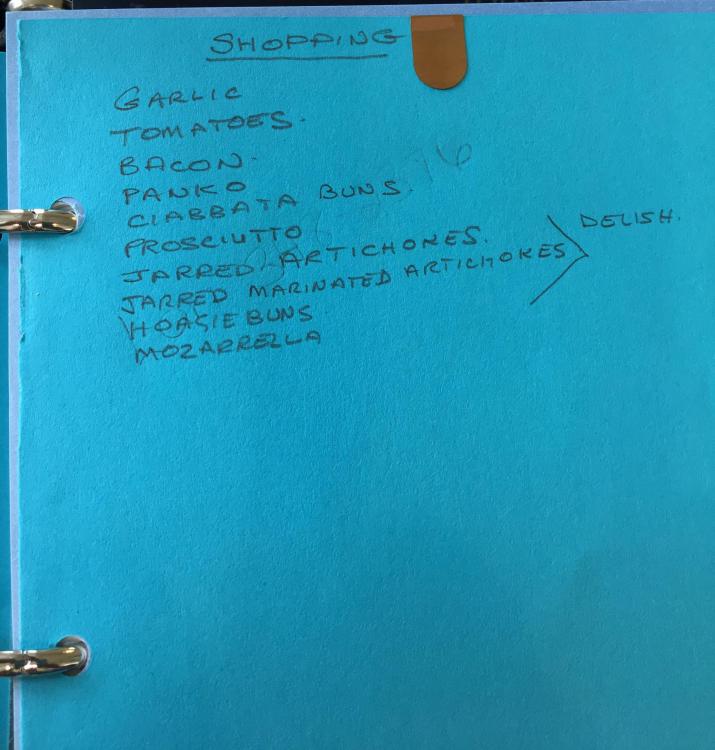 SHOPPING
GARLIC
TOMATOES.
BACON.
PANKO
CIABBATA BUNS.
PROSCIUTTO
JARRED ARTICHOKES.
JARRED MARINATED ARTICHOKES
DELISH.
HOAGIE BUNS
MOZARRELLA